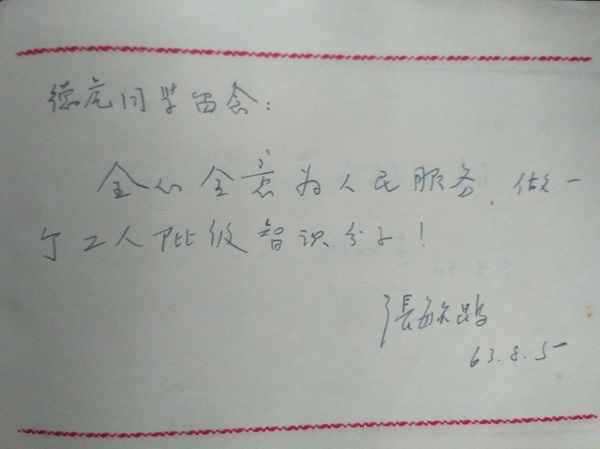 德虎同学留念：
全心全意为人民服务，做一
个工人阶级智识分子！
張敏
63.8.5